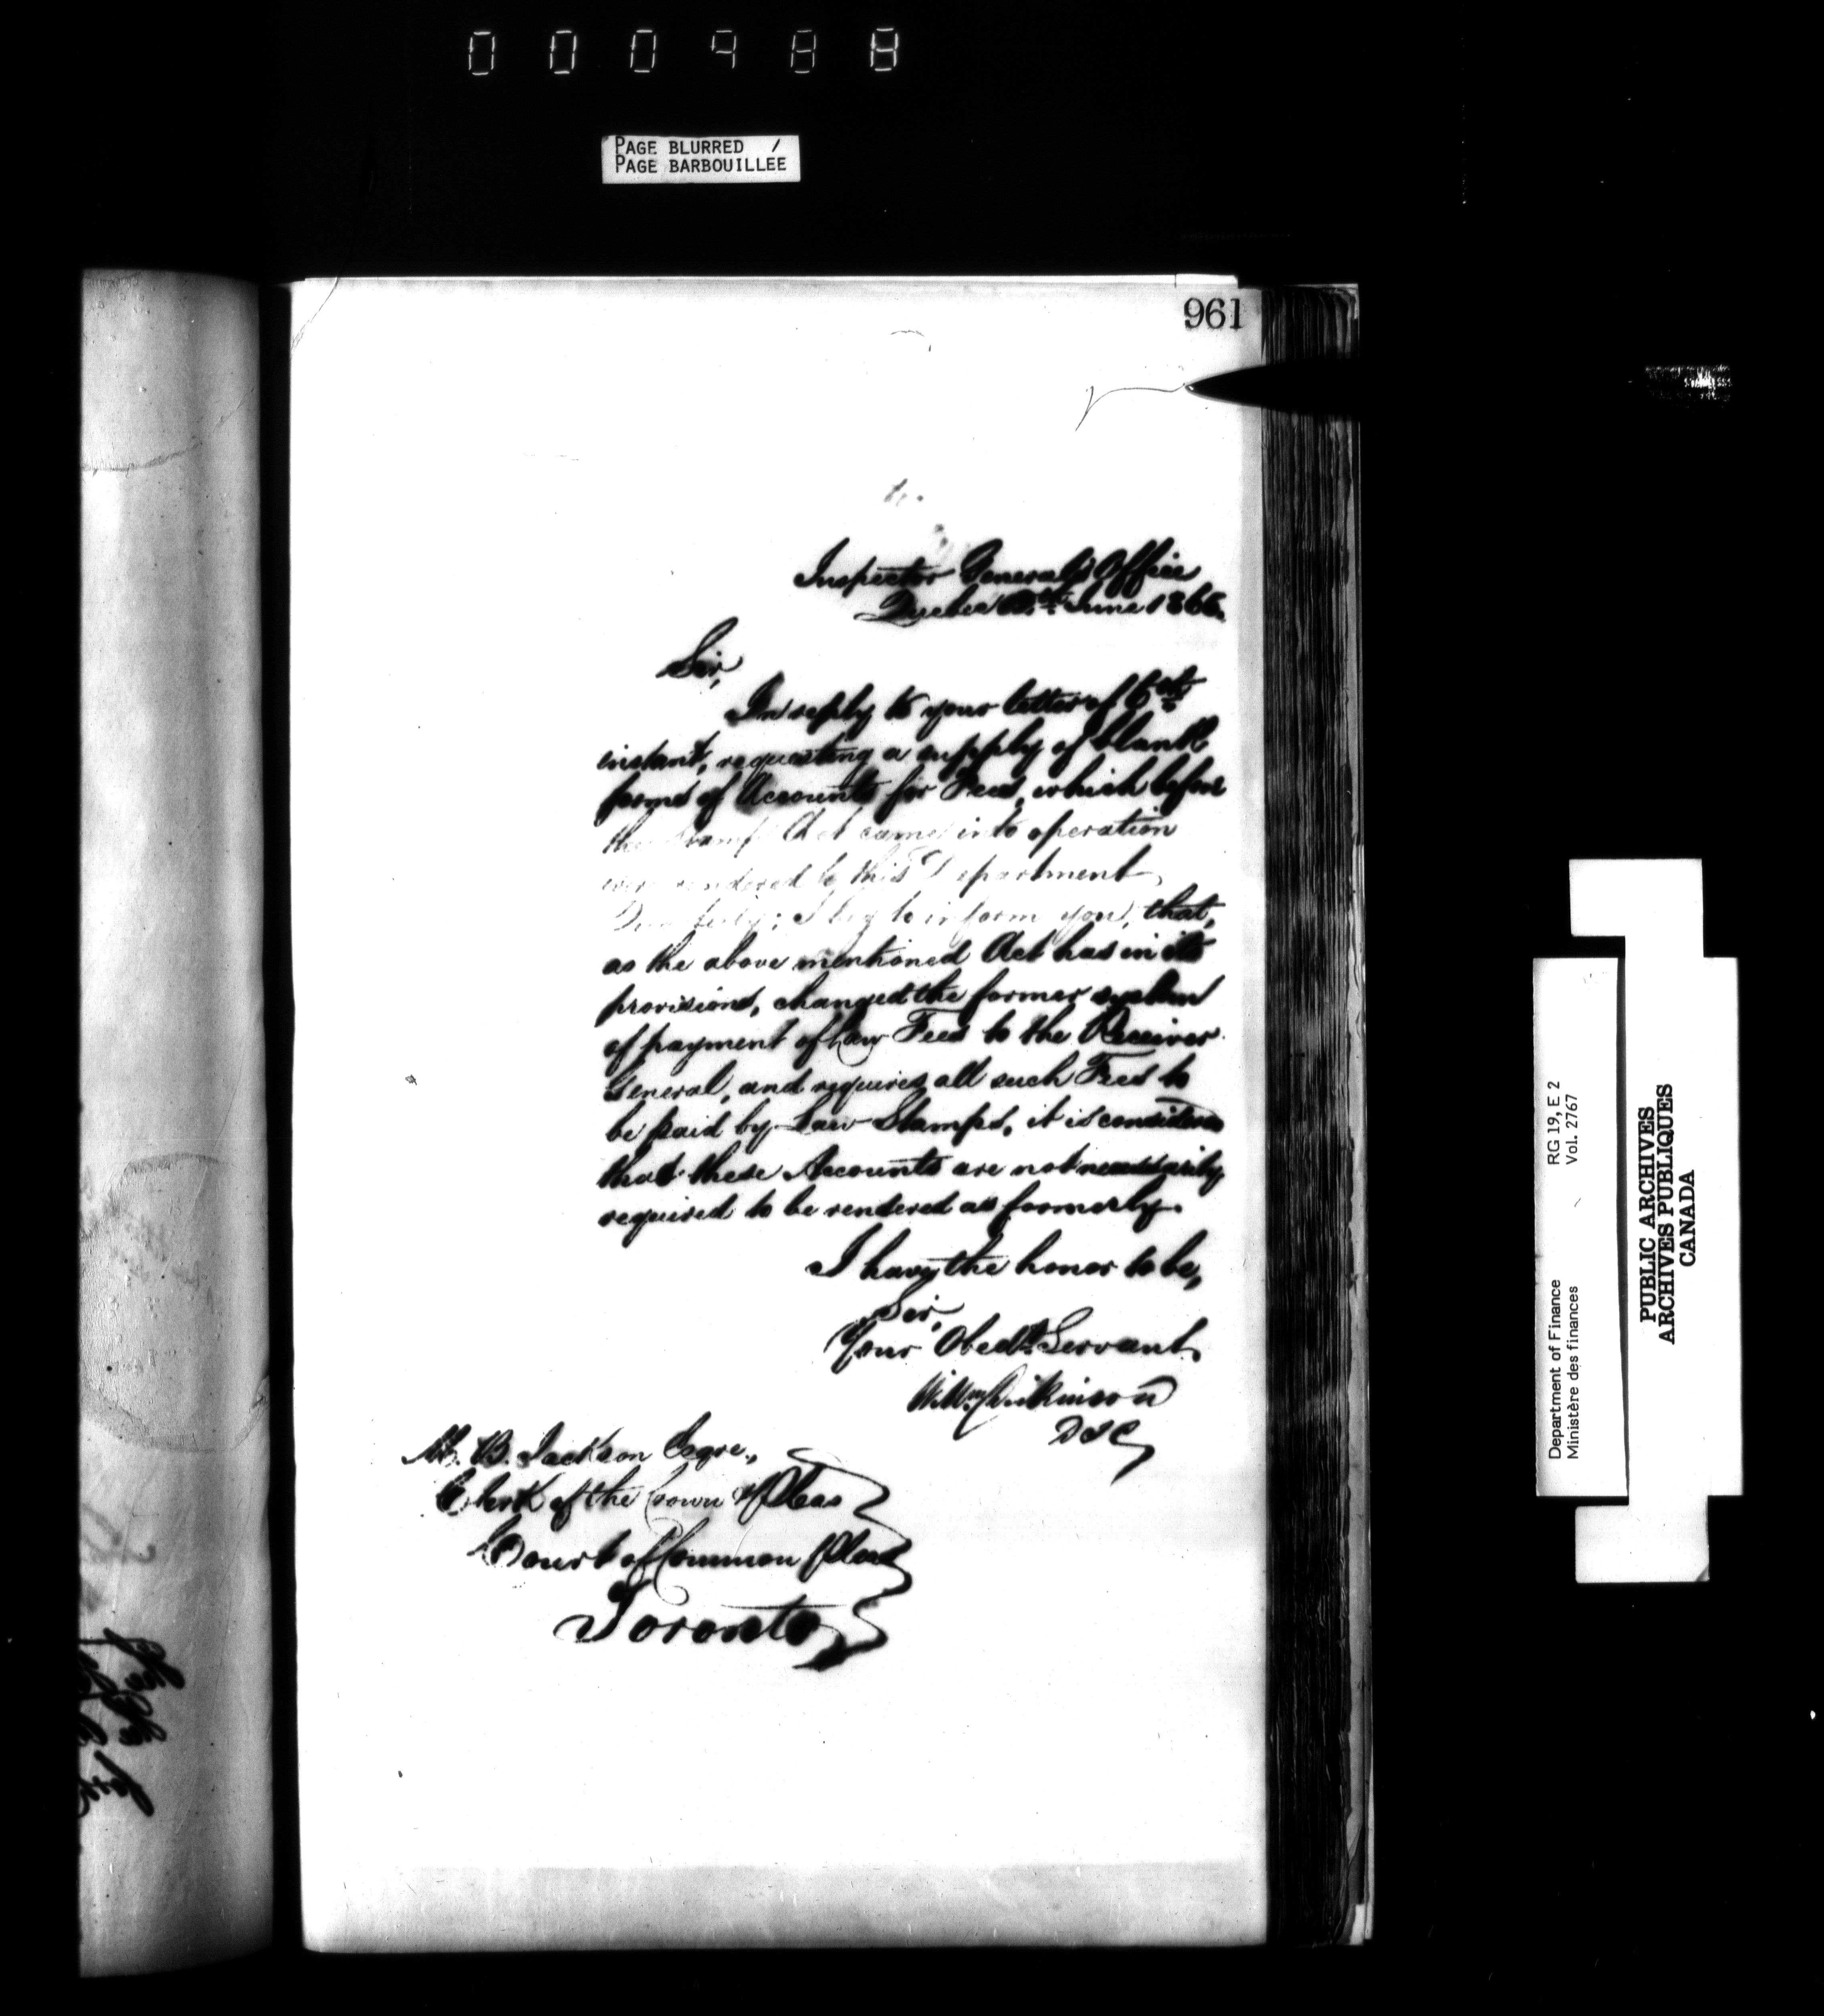 000988
PAGE BLURRED /
PAGE BARBOUILLEE
961
Inspector General's Office
Quebec June 1865.
Sir,
In reply to your letter of 6th
instant, requesting a supply of blank
forms of Accounts for Fees, which before
the Stamp Act came into operation
were rendered to this Department
I beg to inform you, that,
as the above mentioned Act has in its
provisions, changed the former system
of payment of Law Fees to the Receiver
General, and requires all such Fees to
be paid by Law Stamps, it is considered
that these Accounts are not necessarily
required to be rendered as formerly.
I have the honor to be,
Sir,
Your Obedt. Servant,
Willm Dickinson
D I G
M. B. Jackson Esqre.,
Clerk of the Crown & Pleas
Court of Common Pleas
Toronto
Department of Finance RG 19, E 2
Ministère des finances Vol. 2767
PUBLIC ARCHIVES
ARCHIVES PUBLIQUES
CANADA